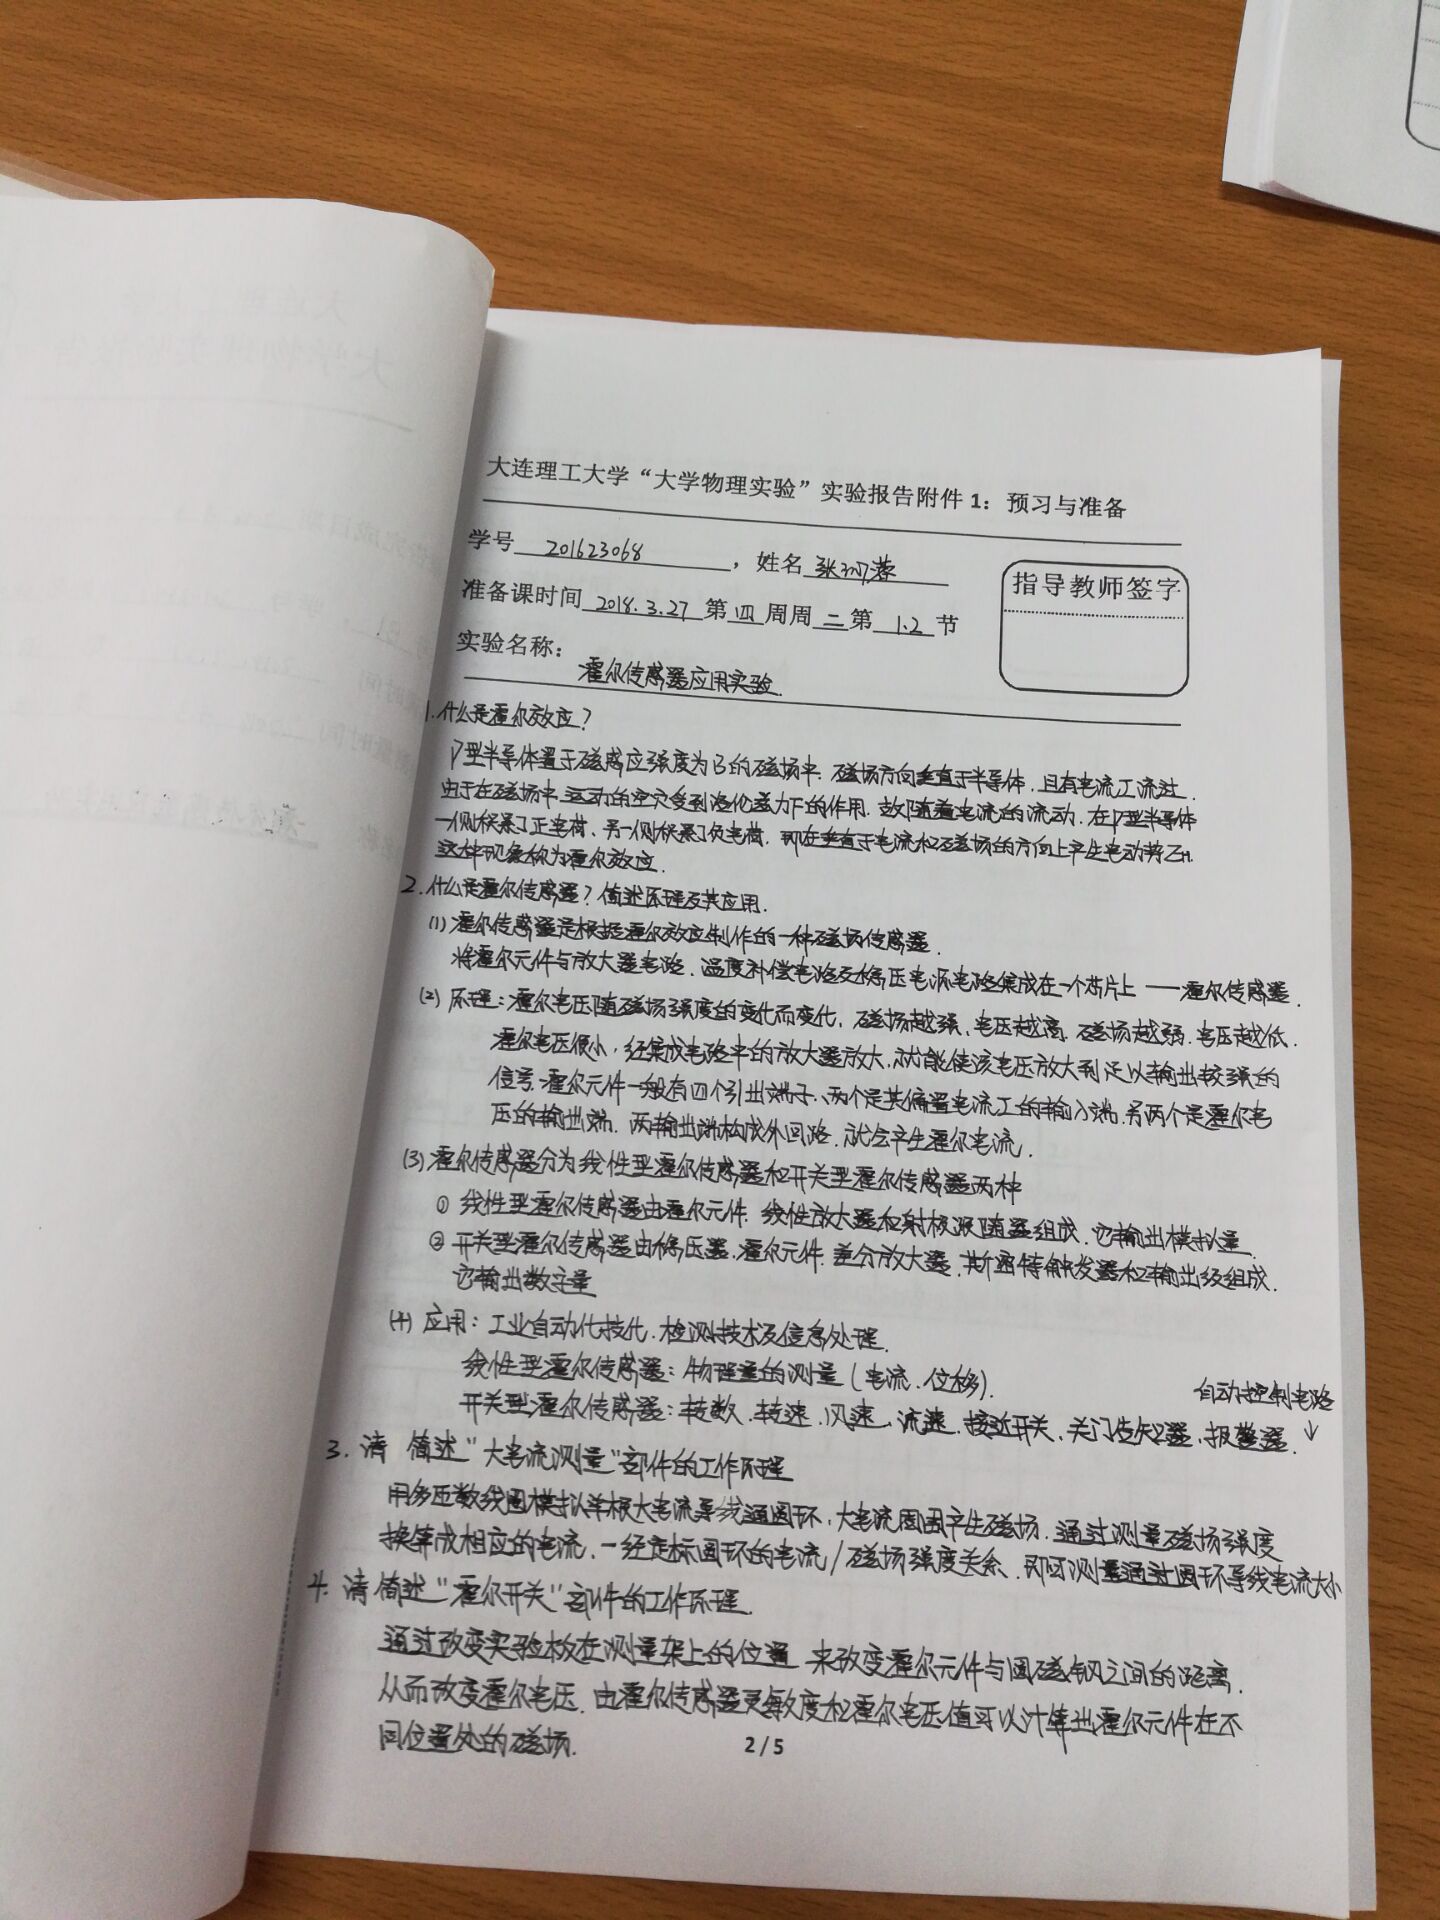 大连理工大学“大学物理实验”实验报告附件1：预习与准备
学号 201623068 ，姓名 张
指导教师签字
准备课时间 2018.3.27 第四周周二第1.2节
实验名称：
霍尔传感器应用实验.
1.什么是霍尔效应？
P型半导体置于磁感应强度为B的磁场中.磁场方向垂直于半导体.且有电流I流过.
由于在磁场中运动的空穴受到洛伦兹力F的作用.故随着电流的流动.在P型半导体
一侧积累了正电荷、另一侧积累了负电荷.即在垂直于电流和磁场的方向上产生电动势EH.
这种现象称为霍尔效应.
2.什么是霍尔传感器？简述原理及其应用.
(1)霍尔传感器是根据霍尔效应制作的一种磁场传感器.
将霍尔元件与放大器电路.温度补偿电路及稳压电源电路集成在一个芯片上——霍尔传感器.
(2)原理：霍尔电压随磁场强度的变化而变化.磁场越强、电压越高.磁场越弱.电压越低.
霍尔电压很小.经集成电路中的放大器放大.就能使该电压放大到足以输出较强的
信号.霍尔元件一般有四个引出端子、两个是其偏置电流I的输入端.另两个是霍尔电
压的输出端.两输出端构成外回路.就会产生霍尔电流.
(3)霍尔传感器分为线性型霍尔传感器和开关型霍尔传感器两种
① 线性型霍尔传感器由霍尔元件.线性放大器和射极跟随器组成.它输出模拟量
② 开关型霍尔传感器由稳压器.霍尔元件.差分放大器.斯密特触发器和输出级组成.
它输出数字量
(4)应用：工业自动化技代.检测技术及信息处理.
线性型霍尔传感器：物理量的测量（电流.位移）.
自动控制电路
开关型霍尔传感器：转数.转速.风速.流速.接近开关.关门告知器.报警器.↓
3.请 简述“大电流测量”部件的工作原理
用多匝数线圈模拟单根大电流导线通圆环.大电流周围产生磁场.通过测量磁场强度
换算成相应的电流.一经定标圆环的电流/磁场强度关系.即可测量通过圆环导线电流大小
4.请简述“霍尔开关”部件的工作原理.
通过改变实验板在测量架上的位置 来改变霍尔元件与圆磁钢之间的距离.
从而改变霍尔电压.由霍尔传感器灵敏度和霍尔电压值可以计算出霍尔元件在不
同位置处的磁场.
2/5